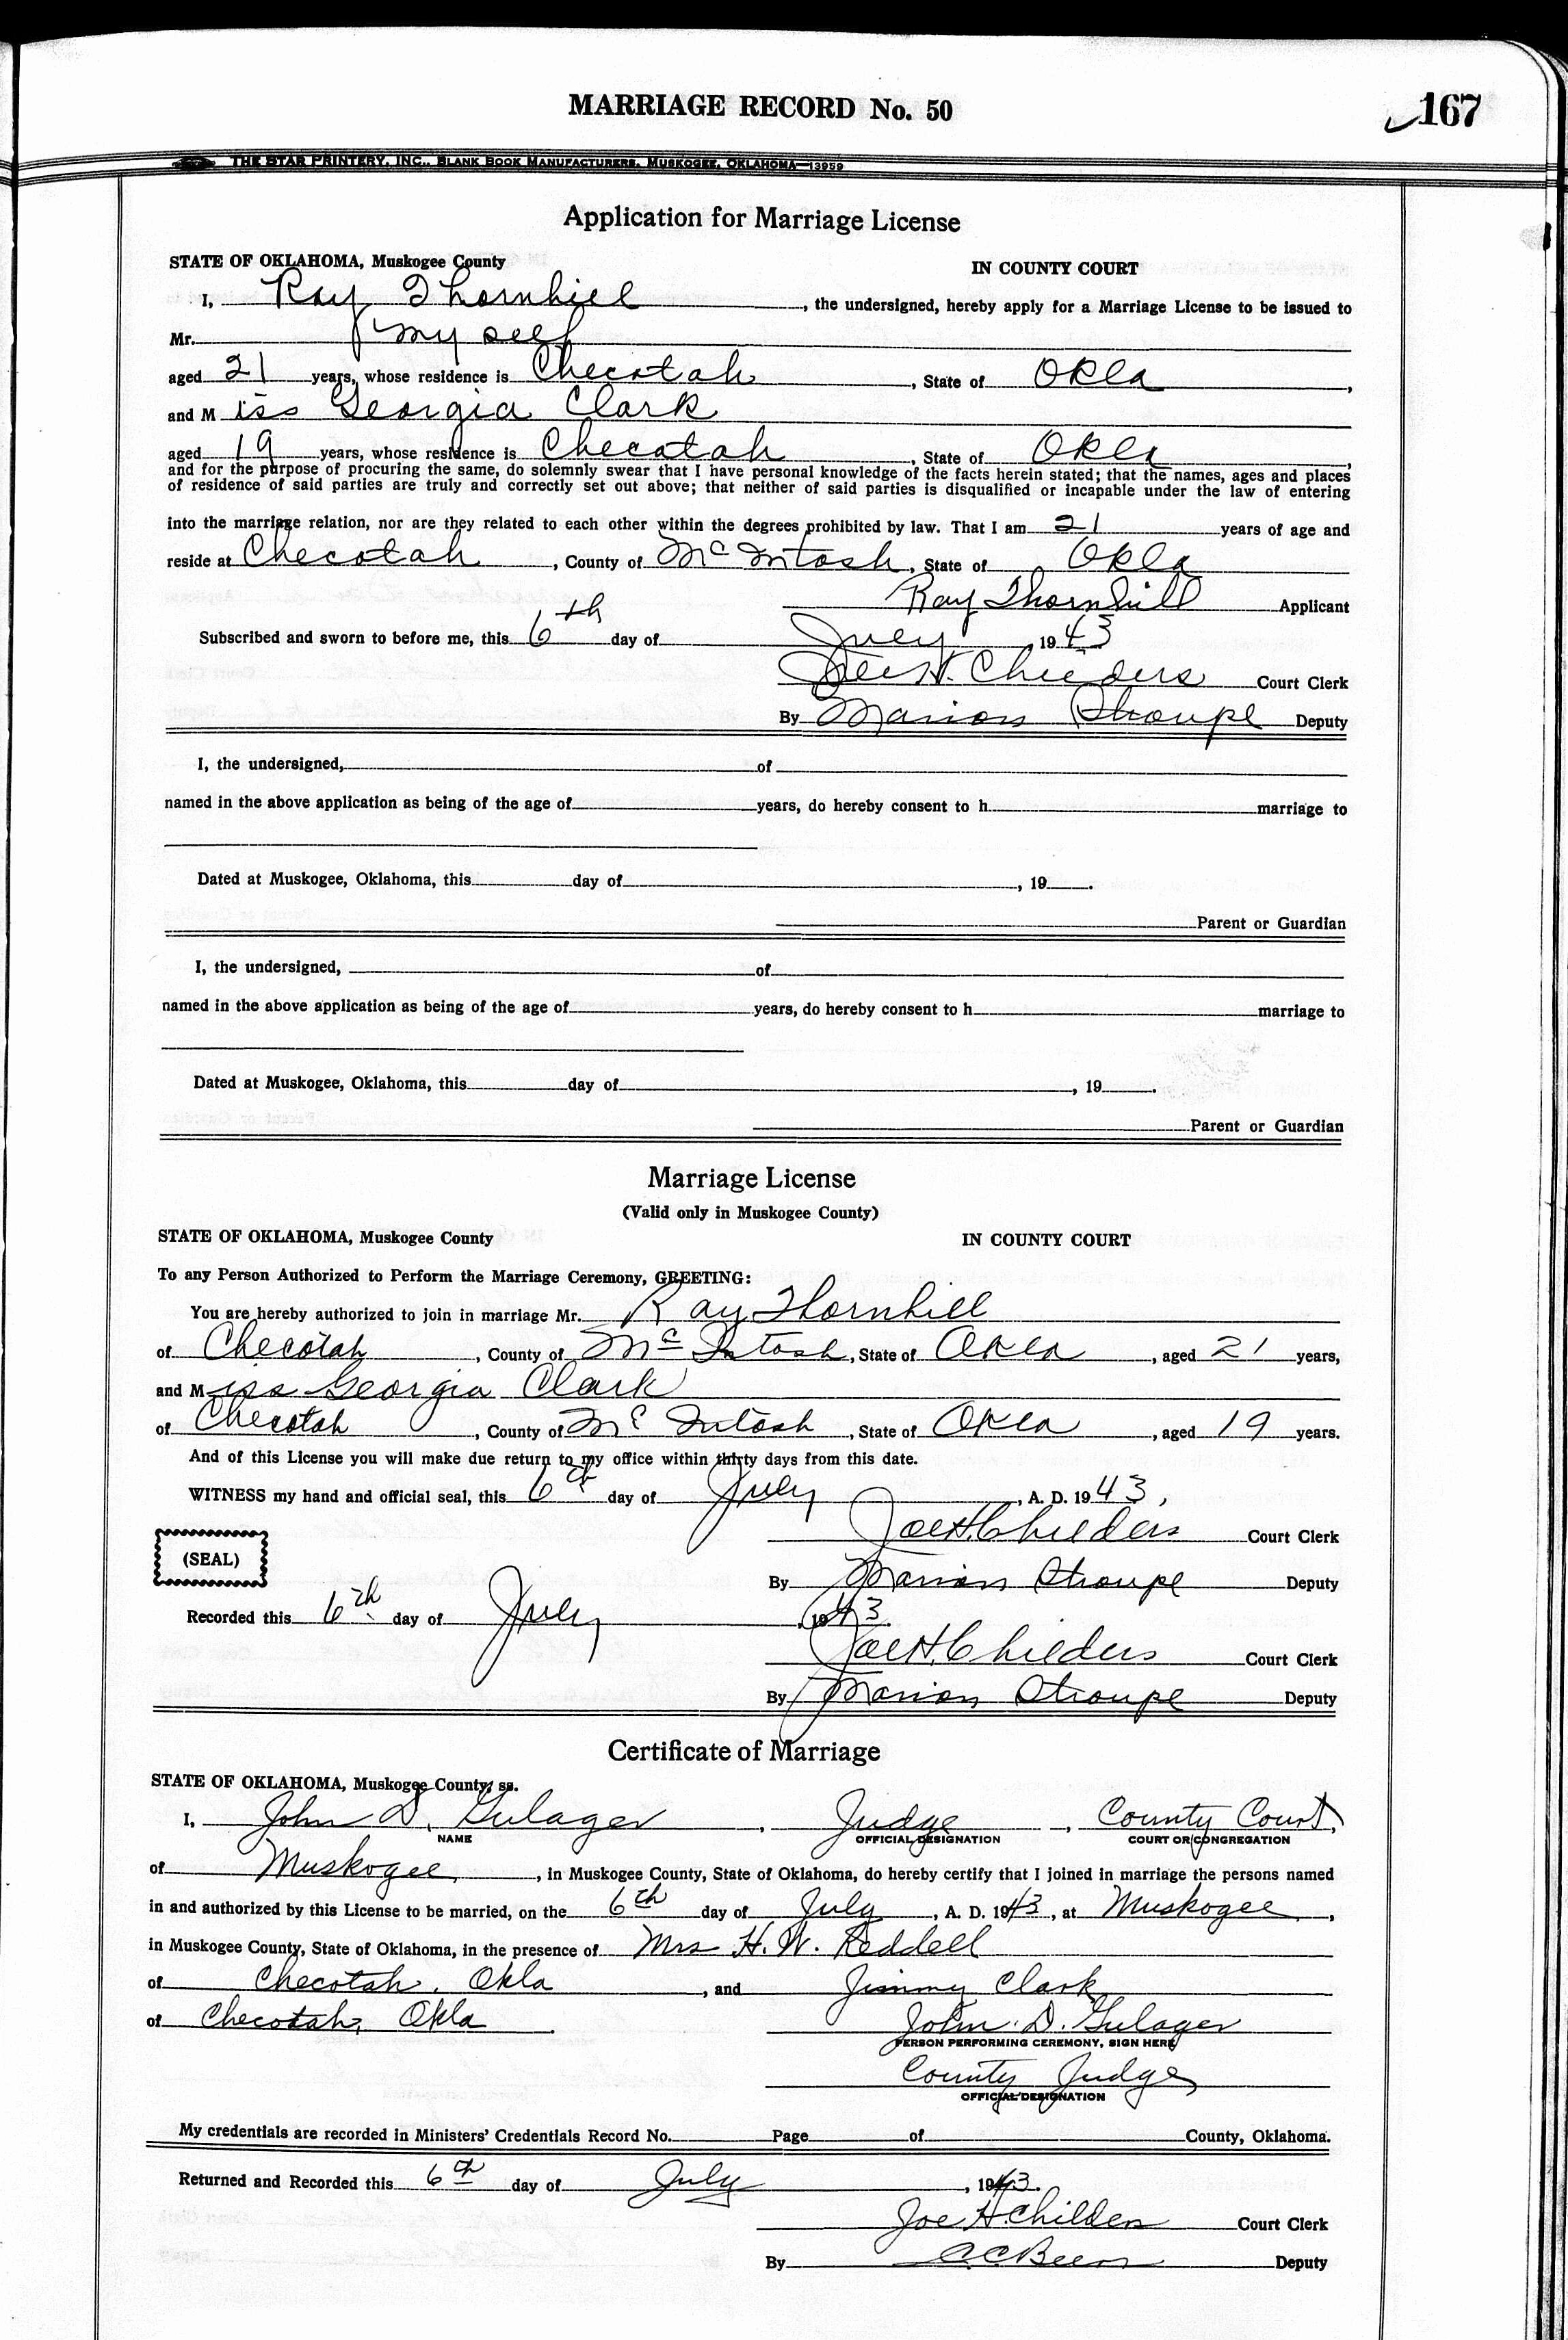 MARRIAGE RECORD No. 50
167
THE STAR PRINTERY, INC., BLANK BOOK MANUFACTURERS, MUSKOGEE, OKLAHOMA—13959
Application for Marriage License
STATE OF OKLAHOMA, Muskogee County IN COUNTY COURT
I, Ray Thornhill, the undersigned, hereby apply for a Marriage License to be issued to
Mr. my self
aged 21 years, whose residence is Checotah, State of Okla,
and Miss Georgia Clark
aged 19 years, whose residence is Checotah, State of Okla,
and for the purpose of procuring the same, do solemnly swear that I have personal knowledge of the facts herein stated; that the names, ages and places
of residence of said parties are truly and correctly set out above; that neither of said parties is disqualified or incapable under the law of entering
into the marriage relation, nor are they related to each other within the degrees prohibited by law. That I am 21 years of age and
reside at Checotah, County of McIntosh, State of Okla
Ray Thornhill Applicant
Subscribed and sworn to before me, this 6th day of July, 1943
Joe H. Childers Court Clerk
By Marion Stroupe Deputy
I, the undersigned, of
named in the above application as being of the age of years, do hereby consent to h marriage to
Dated at Muskogee, Oklahoma, this day of , 19 .
Parent or Guardian
I, the undersigned, of
named in the above application as being of the age of years, do hereby consent to h marriage to
Dated at Muskogee, Oklahoma, this day of , 19 .
Parent or Guardian
Marriage License
(Valid only in Muskogee County)
STATE OF OKLAHOMA, Muskogee County IN COUNTY COURT
To any Person Authorized to Perform the Marriage Ceremony, GREETING:
You are hereby authorized to join in marriage Mr. Ray Thornhill
of Checotah, County of McIntosh, State of Okla, aged 21 years,
and Miss Georgia Clark
of Checotah, County of McIntosh, State of Okla, aged 19 years.
And of this License you will make due return to my office within thirty days from this date.
WITNESS my hand and official seal, this 6th day of July, A. D. 1943,
Joe H. Childers Court Clerk
(SEAL)
By Marion Stroupe Deputy
Recorded this 6th day of July, 1943.
Joe H. Childers Court Clerk
By Marion Stroupe Deputy
Certificate of Marriage
STATE OF OKLAHOMA, Muskogee County, ss.
I, John D. Gulager, Judge, County Court,
NAME OFFICIAL DESIGNATION COURT OR CONGREGATION
of Muskogee, in Muskogee County, State of Oklahoma, do hereby certify that I joined in marriage the persons named
in and authorized by this License to be married, on the 6th day of July, A. D. 1943, at Muskogee,
in Muskogee County, State of Oklahoma, in the presence of Mrs H. W. Reddell
of Checotah, Okla, and Jimmy Clark
of Checotah, Okla.
John D. Gulager
PERSON PERFORMING CEREMONY, SIGN HERE
County Judge
OFFICIAL DESIGNATION
My credentials are recorded in Ministers' Credentials Record No. Page of County, Oklahoma.
Returned and Recorded this 6th day of July, 1943.
Joe H Childers Court Clerk
By Deputy